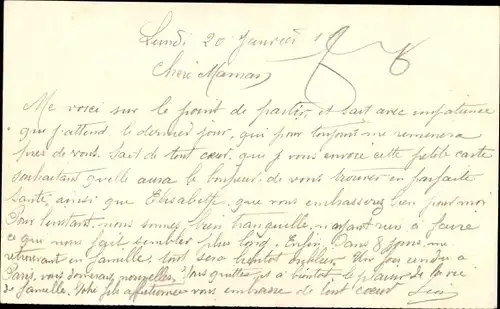 Lundi 20 Janvier
Chère Maman
Me voici sur le point de partir, et sait avec impatience
que j'attend le dernier jour, qui pour toujour me remenera
près de vous. Sait de tout cœur, que j vous envoie cette petite carte
souhaitant qu'elle aura le bonheur de vous trouver en parfaite
santé, ainsi que Elisabethe, que vous embasserez bien pour moi
Pour l'instant, nous sonnes bien tranquille, n'ayant rien à faire
ce que nous fait sembler plus long. Enfin, Dans 8 jours, me
retrouvant en famille, tout sera bientot oublier. Un fois rendu a
Paris, vous donnerais nouvelles. Vous quitte js a bientot le plaisir de la vie
de famille. Votre fils affectionné vous embrasse de tout cœur